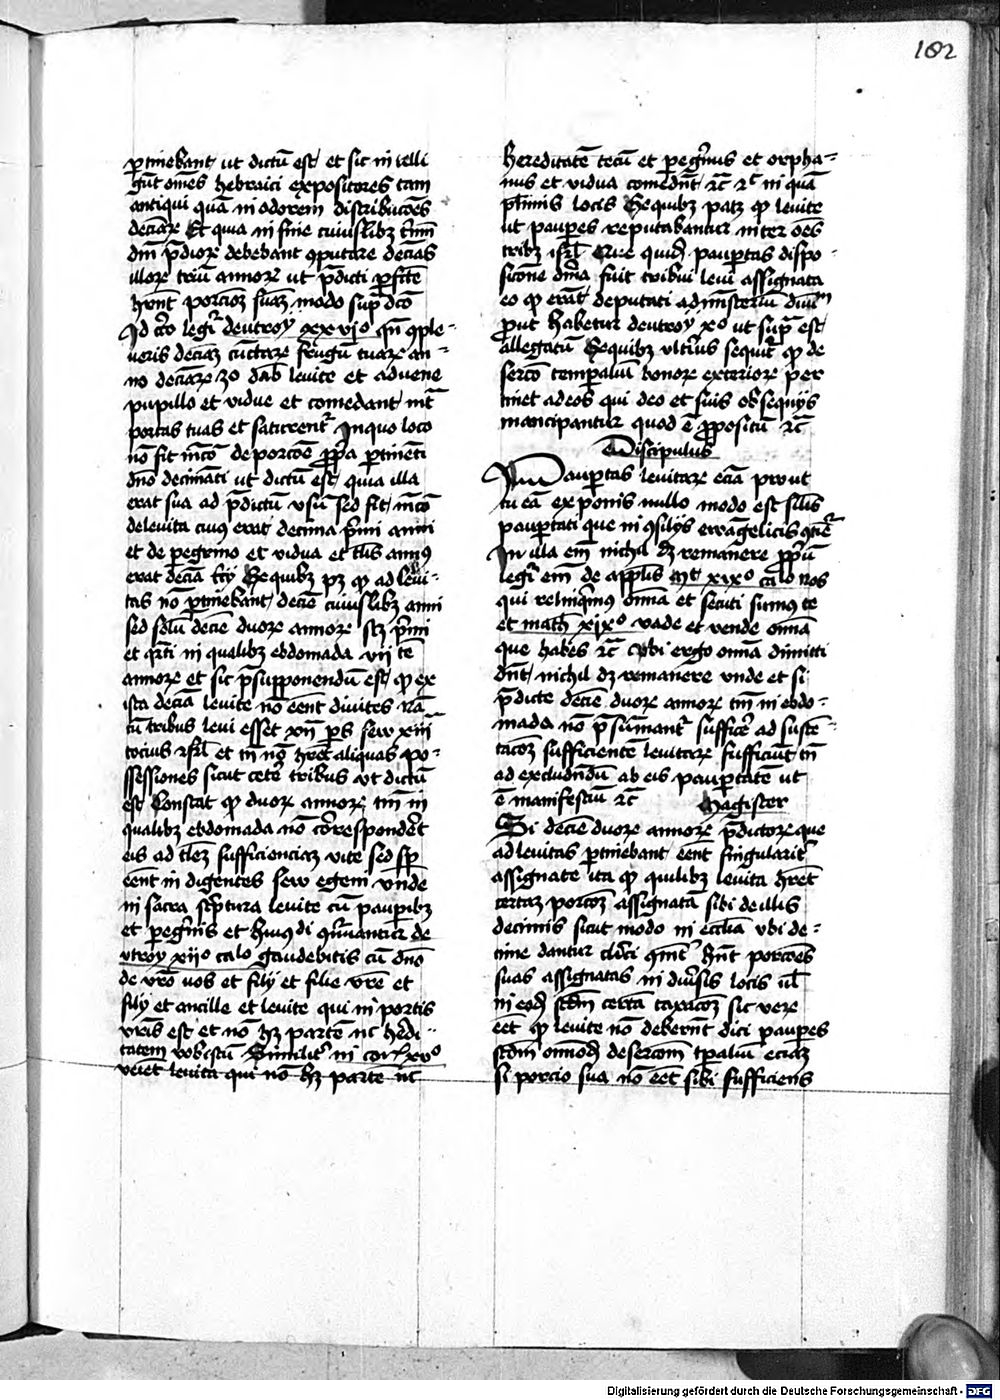 182
ptinebant ut dictū est et sic intelli
gūt om̄es hebraici expositores tam
antiqui quā moderni distribucōes
decimaꝝ Et quia in fine cuiuslibꝫ
debebant cputare decīas
illoꝝ triū annoꝝ ut pdicti
hrent porcioēȝ suaȝ modo sup dco
legit deutroy xxvjo qn cple-
ueris deciaȝ cūctaꝝ frugū tuaꝝ an-
no deciaꝝ 3o dab levite et advene
pupillo et vidue et comedant int
portas tuas et saturent In quo loco
nō fit mēco de porcōe ppa ptineti
dno decimāti ut dictū est quia illa
erat sua ad pdictū usū sed fit mēco
de levita cuius erat decima pmi anni
et de pegrino et vidua et
erat decia Sequibꝫ pꝫ qp ad levi-
tas nō ptinebant decie cuiuslibꝫ anni
sed solū decie duoꝝ annoꝝ scꝫ pmi
et qrti in qualibꝫ ebdomada vij te
annoꝝ et sic psupponendū est qp ex
ista decia levite nō eent divites nā
cū tribus levi esset xijn ps sew xiijn
tocius isrl et tn nō hret aliquas po-
ssessiones sicut cete tribus ut dictū
est Constat qp duoꝝ annoꝝ tm in
qualibꝫ ebdomada nō correspondēt
eis ad sufficienciaȝ vite sed sp
eent indigentes sew egeni unde
in sacra scptura levite cū paupibꝫ
et pegrinis et huiusdi de
utroy xijo calo gaudebitis cū dno
deo vro vos et filij et filie vre et
filij et ancille et levite qui in portis
vris est et nō hꝫ partē nc hedi-
tatem vobiscū Similit in xvo
veiet levita qui nō hꝫ partē nc
hereditatē tecū et pegrinus et orpha-
nus et vidua comedēt ꝛc ꝛc in quā
plimis locis Sequibꝫ patꝫ qp levite
ut paupes reputabantur inter oēs
tribꝫ isrl Que quidē paupertas dispo-
sicōne diuina fuit tribui levi assignata
eo qp erāt deputati ad misteriū divin
put habetur deutroy xo ut supra est
allegatū Sequibꝫ ulterius sequit qp de
sercō temporaliū bonoꝝ exterioꝝ per
tinet ad eos qui deo et suis obsequijs
mancipantur quod ē ppositū ꝛc
Discipulus
paupertas levitaꝝ eciā prout
tu eā exponis nullo modo est silis
paupertati que in csilijs evvangelicis
In illa em nichil dꝫ remanere ppū
legit em de aplis Mt xixo calo nos
qui relinqimus omia et secuti sumus te
et math xixo vade et vende omia
que habes ꝛc ubi ergo omia dimitti
dnt nichil dꝫ remanere unde et si
pdicte decie duoꝝ annoꝝ tm in ebdo-
mada nō psumant sufficē ad suste-
tacoȝ sufficientē levitaꝝ sufficiūt tn
ad excludndū ab eis paupertatē ut
ē manifestū ꝛc Magister
Si decie duoꝝ annoꝝ pdictoꝝ que
ad levitas ptinebant eent singularit
assignate ita qp quilibꝫ levita hret
certaȝ porcoȝ assignatā sibi de illis
decimis sicut modo in ecclia ubi de-
cime dantur clici hnt porcōes
suas assignatas in dusis locis ul
in eodē scdm certā taxacoȝ sic vere
eet qp levite nō deberent dici paupes
scdm omnodȝ desercom tpaliū eciaȝ
si porcio sua nō eet sibi sufficiens
Digitalisierung gefördert durch die Deutsche Forschungsgemeinschaft - DFG